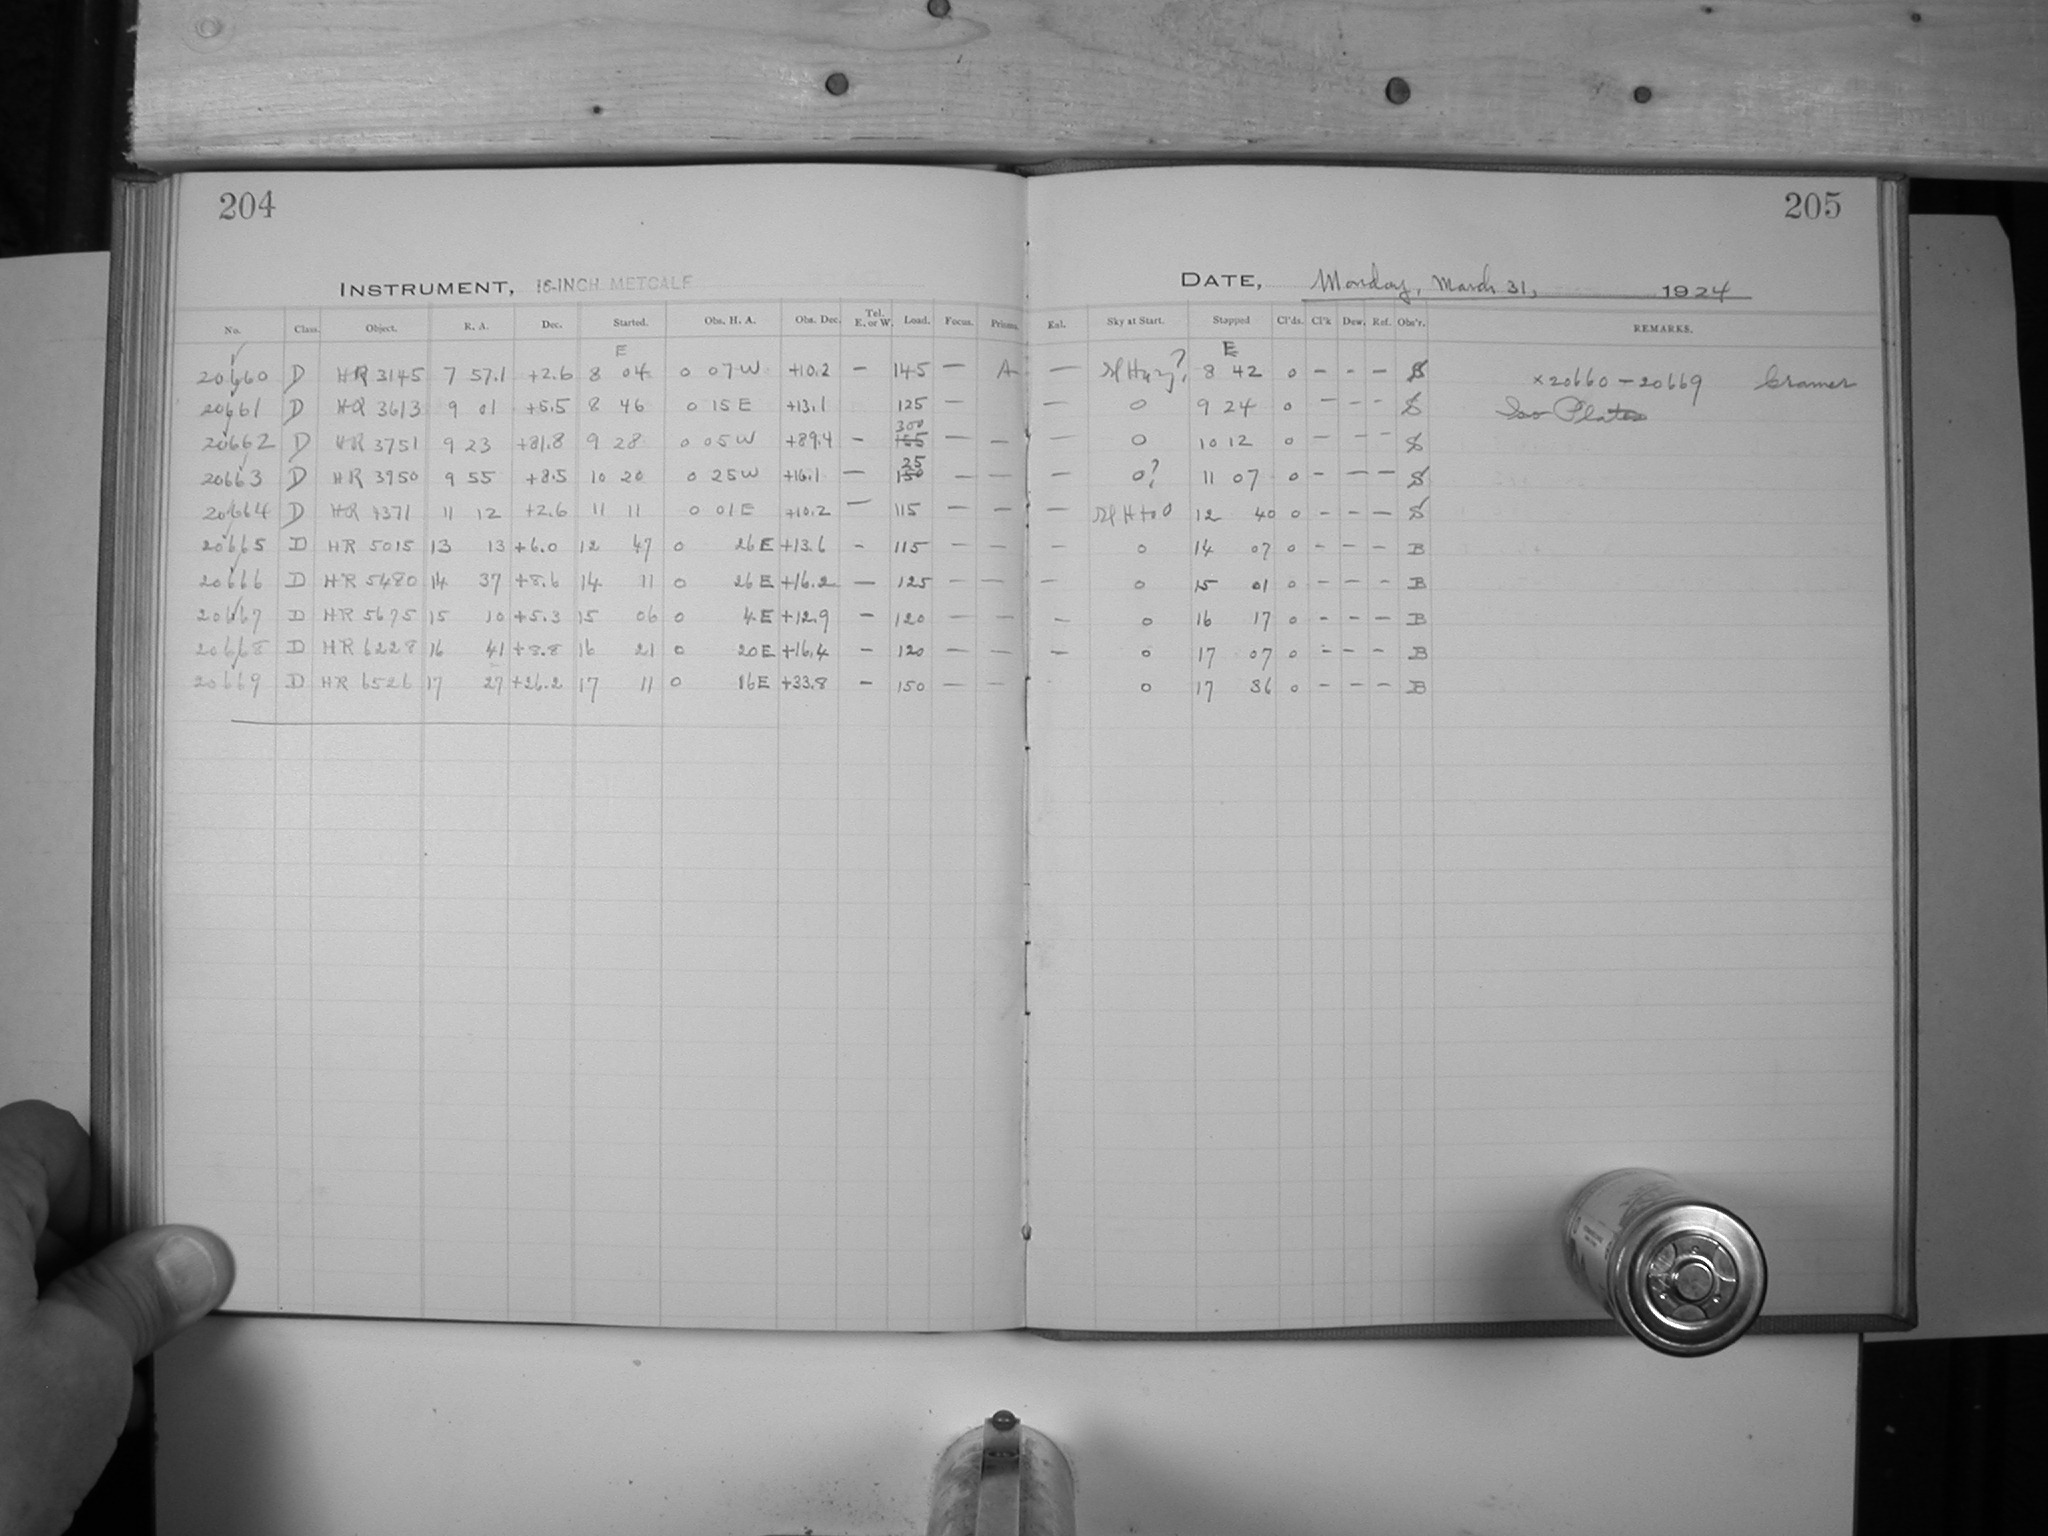 204
INSTRUMENT, 16-INCH METCALF
No. Class. Object. R. A. Dec. Started. Obs. H. A. Obs. Dec. Tel. E. or W. Load. Focus. Prisms.
E
20660 D HR 3145 7 57.1 +2.6 8 04 0 07 W +10.2 — 145 — A
20661 D HR 3613 9 01 +5.5 8 46 0 15 E +13.1 125 —
300
20662 D HR 3751 9 23 +81.8 9 28 0 05 W +89.4 — 155 — —
25
20663 D HR 3950 9 55 +8.5 10 20 0 25 W +16.1 — 150 — —
20664 D HR 4371 11 12 +2.6 11 11 0 01 E +10.2 — 115 — —
20665 D HR 5015 13 13 +6.0 12 47 0 26 E +13.6 - 115 — —
20666 D HR 5480 14 37 +8.6 14 11 0 26 E +16.2 — 125 — —
20667 D HR 5675 15 10 +5.3 15 06 0 4 E +12.9 — 120 — —
20668 D HR 6228 16 41 +8.8 16 21 0 20 E +16.4 — 120 — —
20669 D HR 6526 17 27 +26.2 17 11 0 16 E +33.8 — 150 — —
205
DATE, Monday, March 31, 1924
Ext. Sky at Start. Stopped Cl'ds. Cl'k Dew. Ref. Obs'r. REMARKS.
E
— Sl Hazy? 8 42 0 - - — S x20660 — 20669 Cramer
— 0 9 24 0 - — — S Iso Plates
0 10 12 0 — - - S
— 0? 11 07 0 - — — S
— Sl H to 0 12 40 0 - - — S
— 0 14 07 0 - - - B
— 0 15 01 0 - - - B
— 0 16 17 0 - - — B
— 0 17 07 0 - - - B
0 17 36 0 - - - B